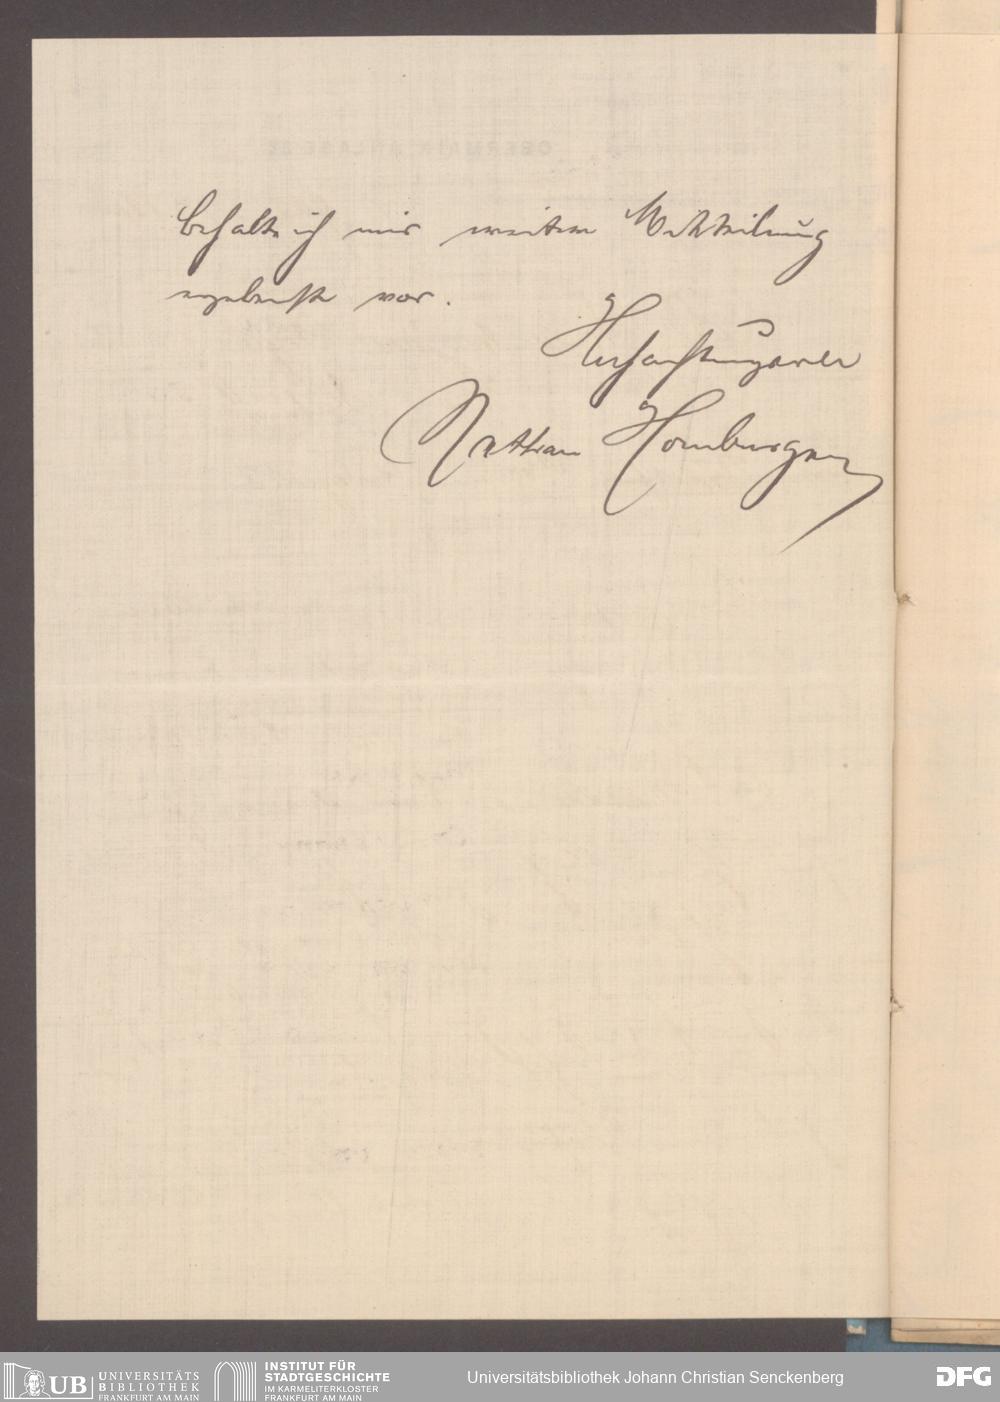 behalte ich mir weitere Mitteilung
ergebenst vor.
Hochachtungsvoll
Nathan Homburger
UB UNIVERSITÄTS
BIBLIOTHEK
FRANKFURT AM MAIN
INSTITUT FÜR
STADTGESCHICHTE
IM KARMELITERKLOSTER
FRANKFURT AM MAIN
Universitätsbibliothek Johann Christian Senckenberg
DFG